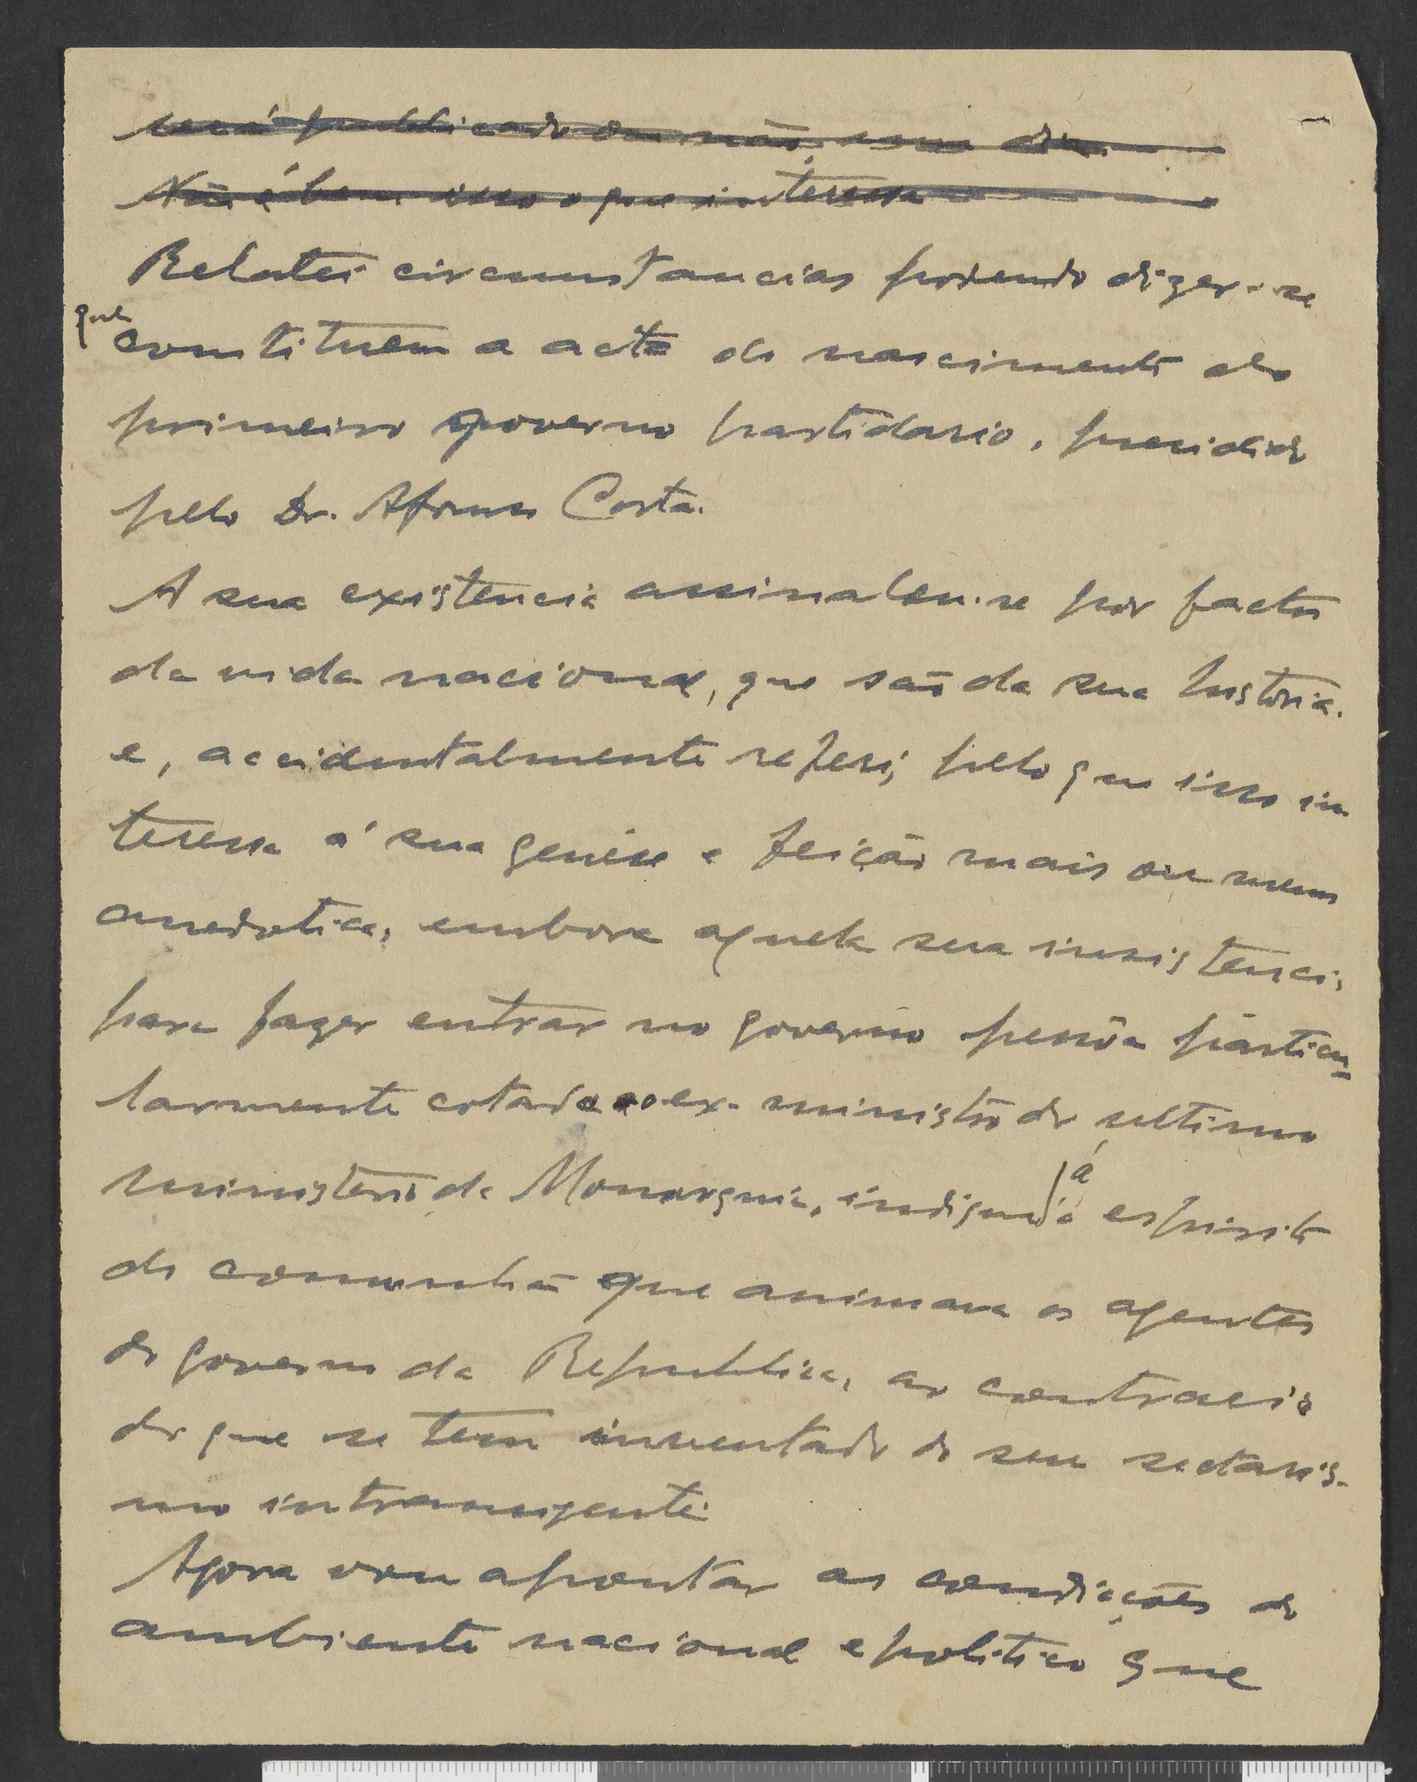 será publicado ou não, um dia.
Não é bem isso o que interessa
Relatei circumstancias podendo dizer-se
que constituem a acta do nascimento do
primeiro governo partidario, presidido
pelo Dr. Afonso Costa.
A sua existencia assinalou-se por factos
da vida nacional, que são da sua historia.
e, accidentalmente referi, pelo que isso in
teressa á sua genése e feição mais ou menos
anedotica, embora aquela sua insistencia
para fazer entrar no governo pessôa particu-
larmente cotada ex-ministro do ultimo
ministerio da Monarquia, indique já espirito
de comunhão que animava os agentes
do governo da Republica, ao contrario
do que se tem inventado do seu sectaris-
mo intransigente.
Agora vou apontar as condicções do
ambiente nacional e politico que